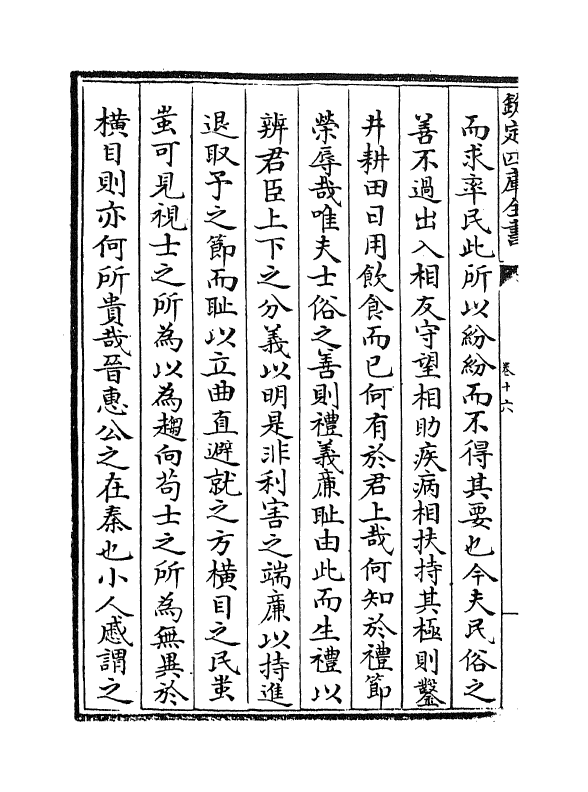 欽定四庫全書
卷十六
而求率民此所以紛紛而不得其要也今夫民俗之
善不過出入相友守望相助疾病相扶持其極則鑿
井耕田日用飲食而已何有於君上哉何知於禮節
榮辱哉唯夫士俗之善則禮義廉耻由此而生禮以
辨君臣上下之分義以明是非利害之端廉以持進
退取予之節而耻以立曲直避就之方橫目之民蚩
蚩可見視士之所為以為趨向茍士之所為無異於
橫目則亦何所貴哉晉惠公之在秦也小人慼謂之